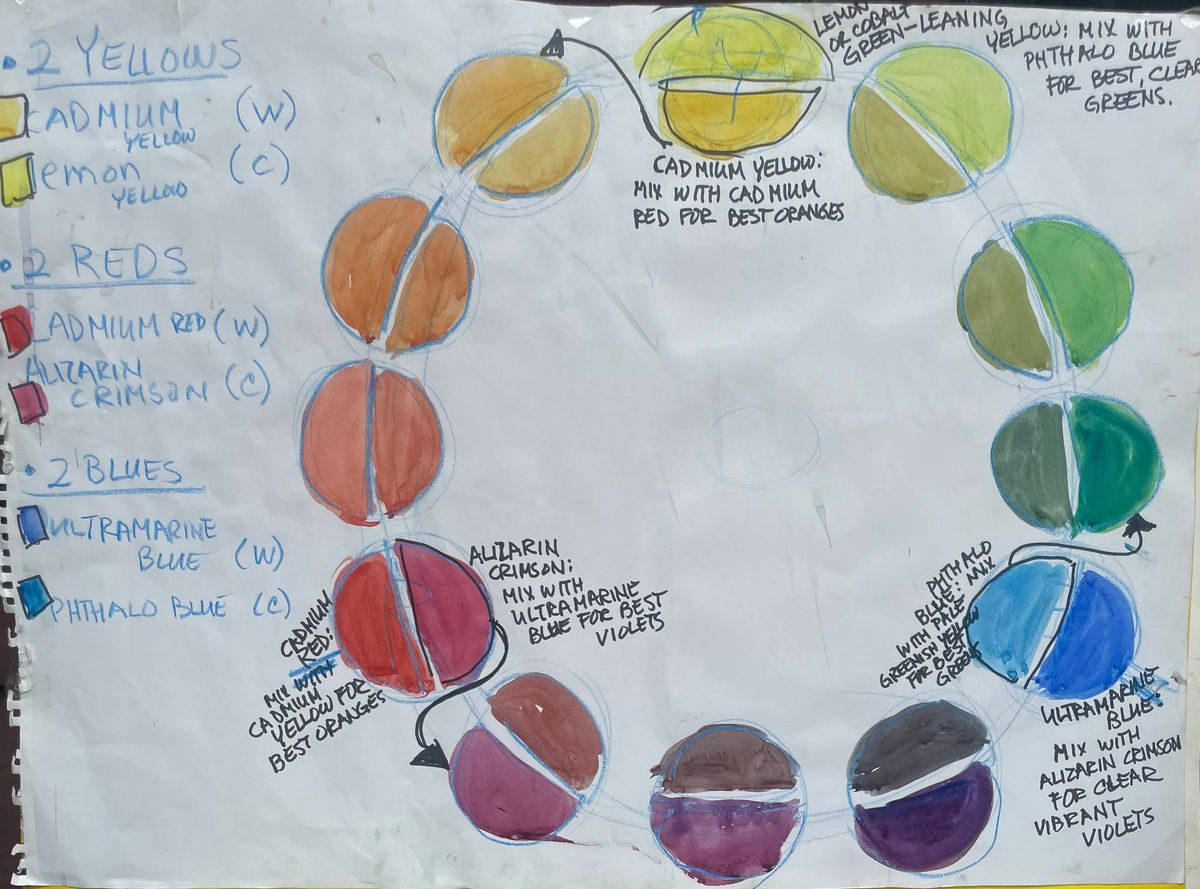 • 2 YELLOWS
CADMIUM (W)
YELLOW
lemon (C)
YELLOW
• 2 REDS
CADMIUM RED (W)
ALIZARIN
CRIMSON (C)
• 2 BLUES
ULTRAMARINE
BLUE (W)
PHTHALO BLUE (C)
LEMON
OR COBALT
GREEN-LEANING
YELLOW: MIX WITH
PHTHALO BLUE
FOR BEST, CLEAR
GREENS.
CADMIUM YELLOW:
MIX WITH CADMIUM
RED FOR BEST ORANGES
ALIZARIN
CRIMSON:
MIX WITH
ULTRAMARINE
BLUE FOR BEST
VIOLETS
CADMIUM
RED:
MIX WITH
CADMIUM
YELLOW FOR
BEST ORANGES
PHTHALO
BLUE: MIX
WITH PALE
GREENISH YELLOW
FOR BEST
GREENS
ULTRAMARINE
BLUE:
MIX WITH
ALIZARIN CRIMSON
FOR CLEAR
VIBRANT
VIOLETS